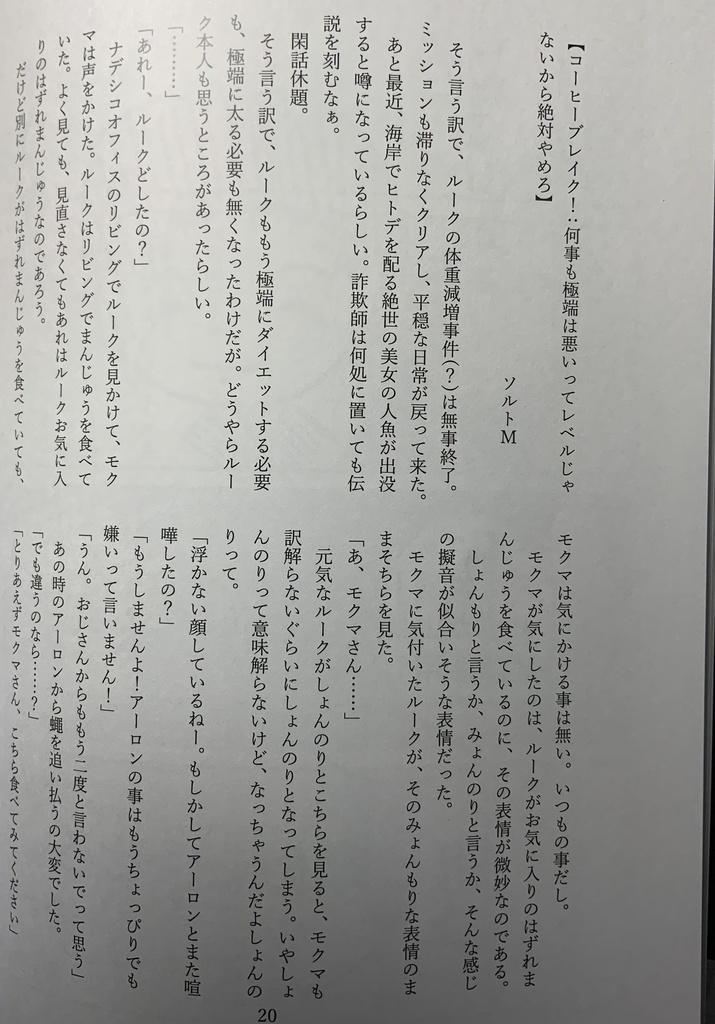 【コーヒーブレイク！：何事も極端は悪いってレベルじゃ
ないから絶対やめろ】
ソルトM
そう言う訳で、ルークの体重減増事件(？)は無事終了。
ミッションも滞りなくクリアし、平穏な日常が戻って来た。
あと最近、海岸でヒトデを配る絶世の美女の人魚が出没
すると噂になっているらしい。詐欺師は何処に置いても伝
説を刻むなぁ。
閑話休題。
そう言う訳で、ルークももう極端にダイエットする必要
も、極端に太る必要も無くなったわけだが。どうやらルー
ク本人も思うところがあったらしい。
「…………」
「あれー、ルークどしたの？」
ナデシコオフィスのリビングでルークを見かけて、モク
マは声をかけた。ルークはリビングでまんじゅうを食べて
いた。よく見ても、見直さなくてもあれはルークお気に入
りのはずれまんじゅうなのであろう。
だけど別にルークがはずれまんじゅうを食べていても、
モクマは気にかける事は無い。いつもの事だし。
モクマが気にしたのは、ルークがお気に入りのはずれま
んじゅうを食べているのに、その表情が微妙なのである。
しょんもりと言うか、みょんのりと言うか、そんな感じ
の擬音が似合いそうな表情だった。
モクマに気付いたルークが、そのみょんもりな表情のま
まそちらを見た。
「あ、モクマさん……」
元気なルークがしょんのりとこちらを見ると、モクマも
訳解らないぐらいにしょんのりとなってしまう。いやしょ
んのりって意味解らないけど、なっちゃうんだよしょんの
りって。
「浮かない顔しているねー。もしかしてアーロンとまた喧
嘩したの？」
「もうしませんよ！アーロンの事はもうちょっぴりでも
嫌いって言いません！」
「うん。おじさんからももう二度と言わないでって思う」
あの時のアーロンから蠅を追い払うの大変でした。
「でも違うのなら……？」
「とりあえずモクマさん、こちら食べてみてください」
20